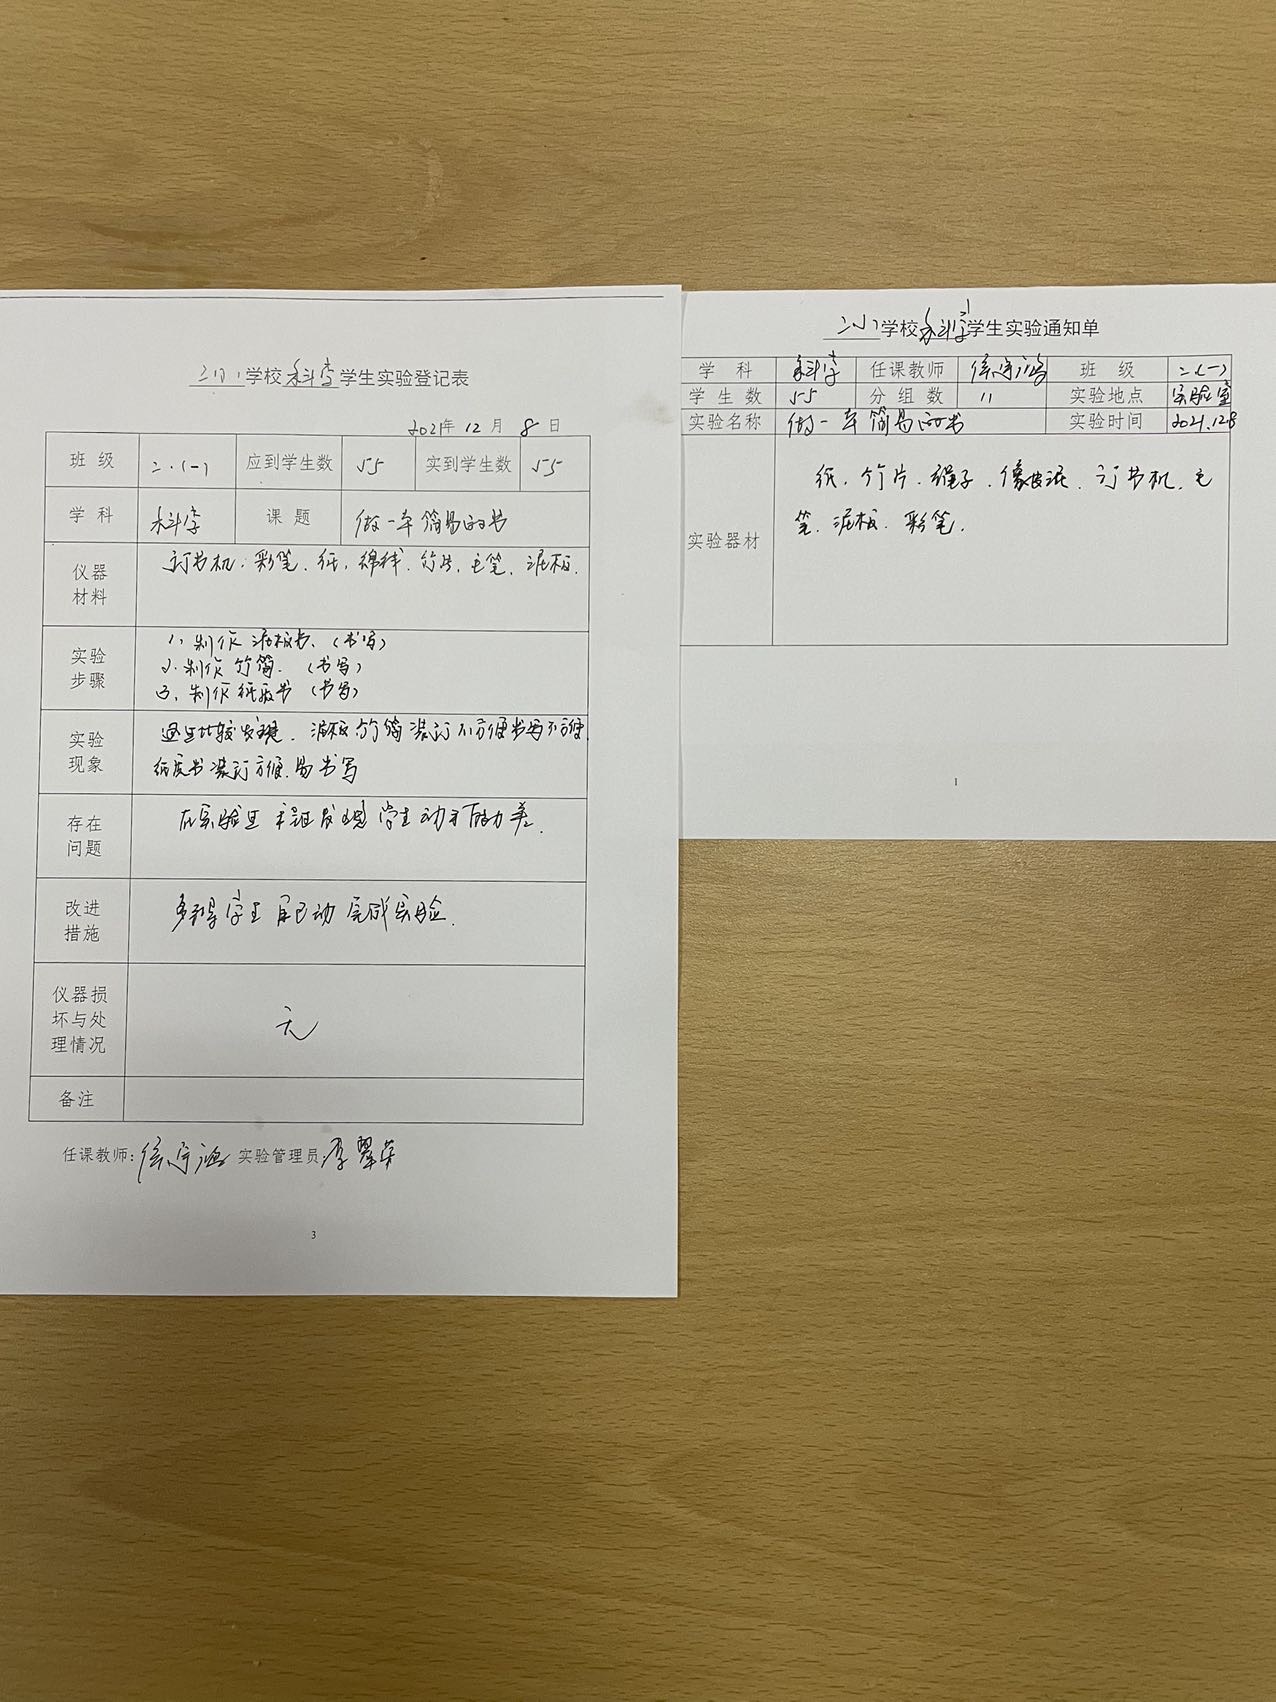 二小学校科学学生实验登记表
2021年 12 月 8 日
班 级 二.(一) 应到学生数 55 实到学生数 55
学 科 科学 课 题 做一本简易的书
仪器
材料
订书机、彩笔、纸、绵线、竹片、毛笔、泥板.
实验
步骤
1、制作泥板书、(书写)
2.制作竹简.(书写)
3、制作纸质书(书写)
实验
现象
通过比较发现.泥板竹简装订不方便书写不方便.
纸质书装订方便.易书写
存在
问题
在实验过程发现学生动手能力差.
改进
措施
学生自己动 完成实验.
仪器损
坏与处
理情况
无
备注
任课教师: 侯宇涵 实验管理员: 李翠荣
3
二小学校科学学生实验通知单
学 科 科学 任课教师 侯宇涵 班 级 二(一)
学 生 数 55 分 组 数 11 实验地点 实验室
实验名称 做一本简易的书 实验时间 2021.12.8
实验器材
纸、竹片、绳子、像皮泥、订书机、毛
笔、泥板、彩笔.
1